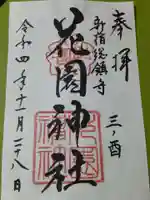 奉拝
三ノ酉
新宿総鎮守
花園神社
令和四年十一月二十八日